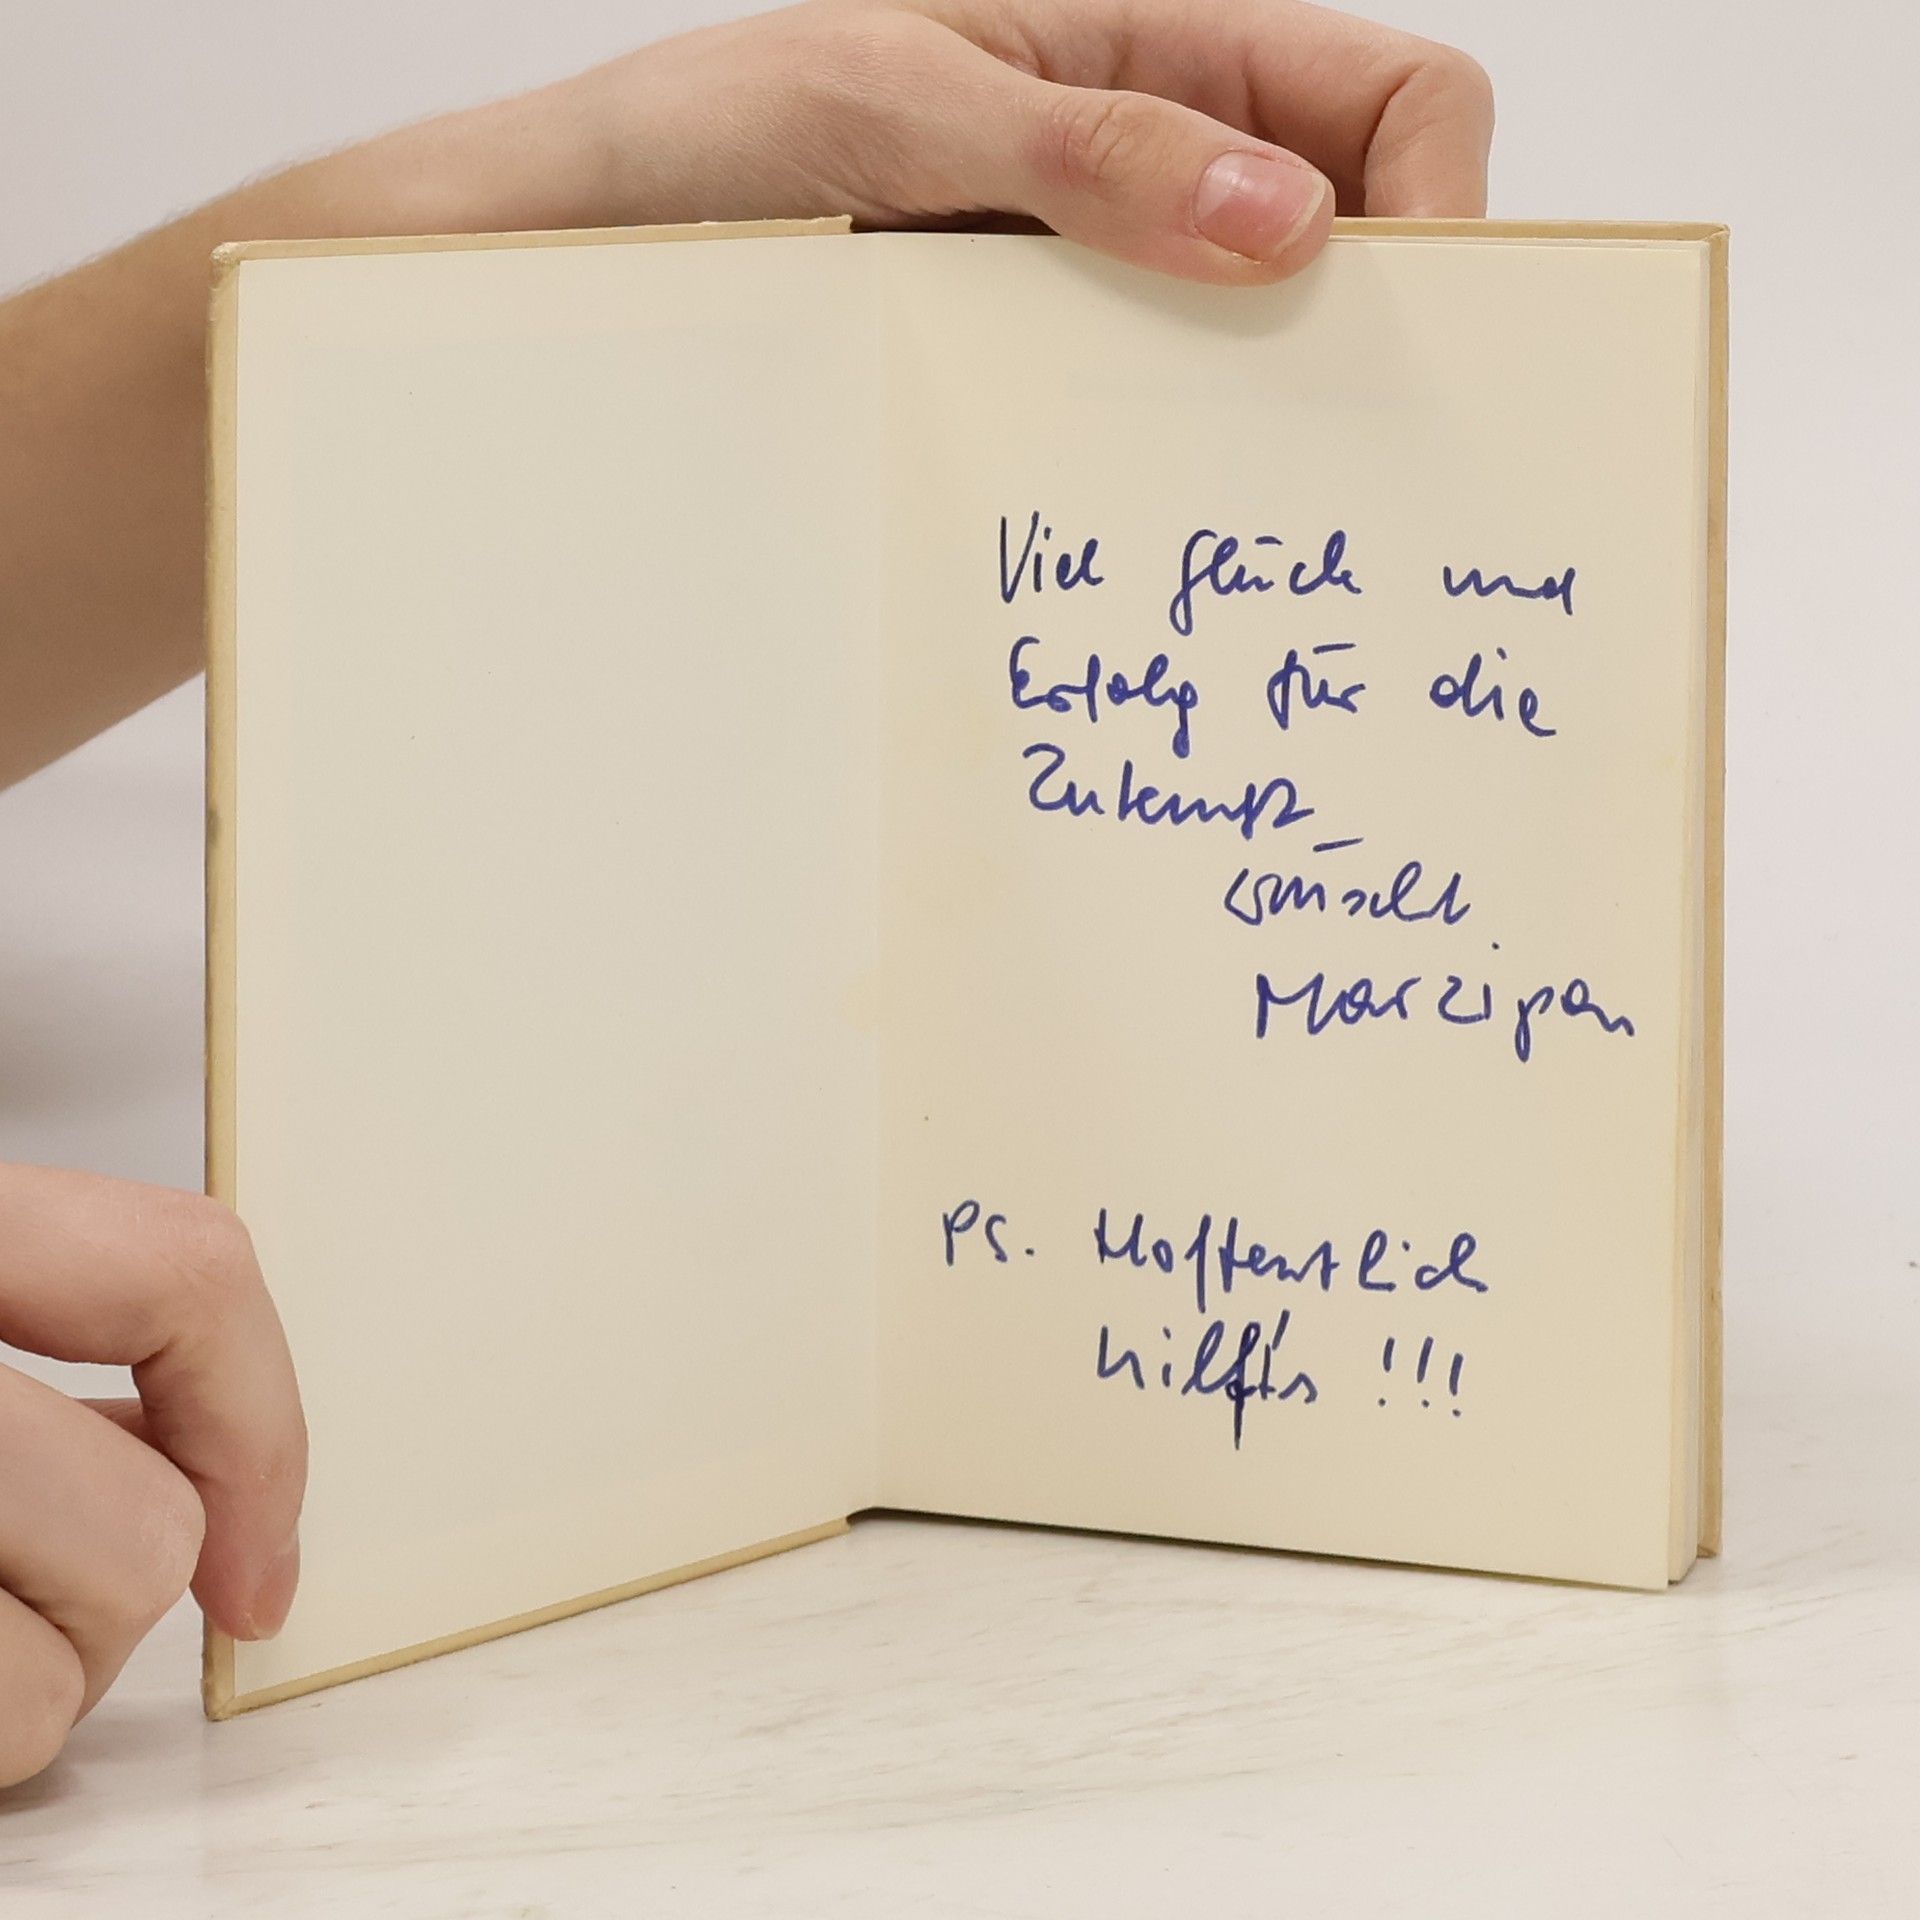 Viel Glück und
Erfolg für die
Zukunft
wünscht
Marzipan
PS. Hoffentlich
hilft's !!!